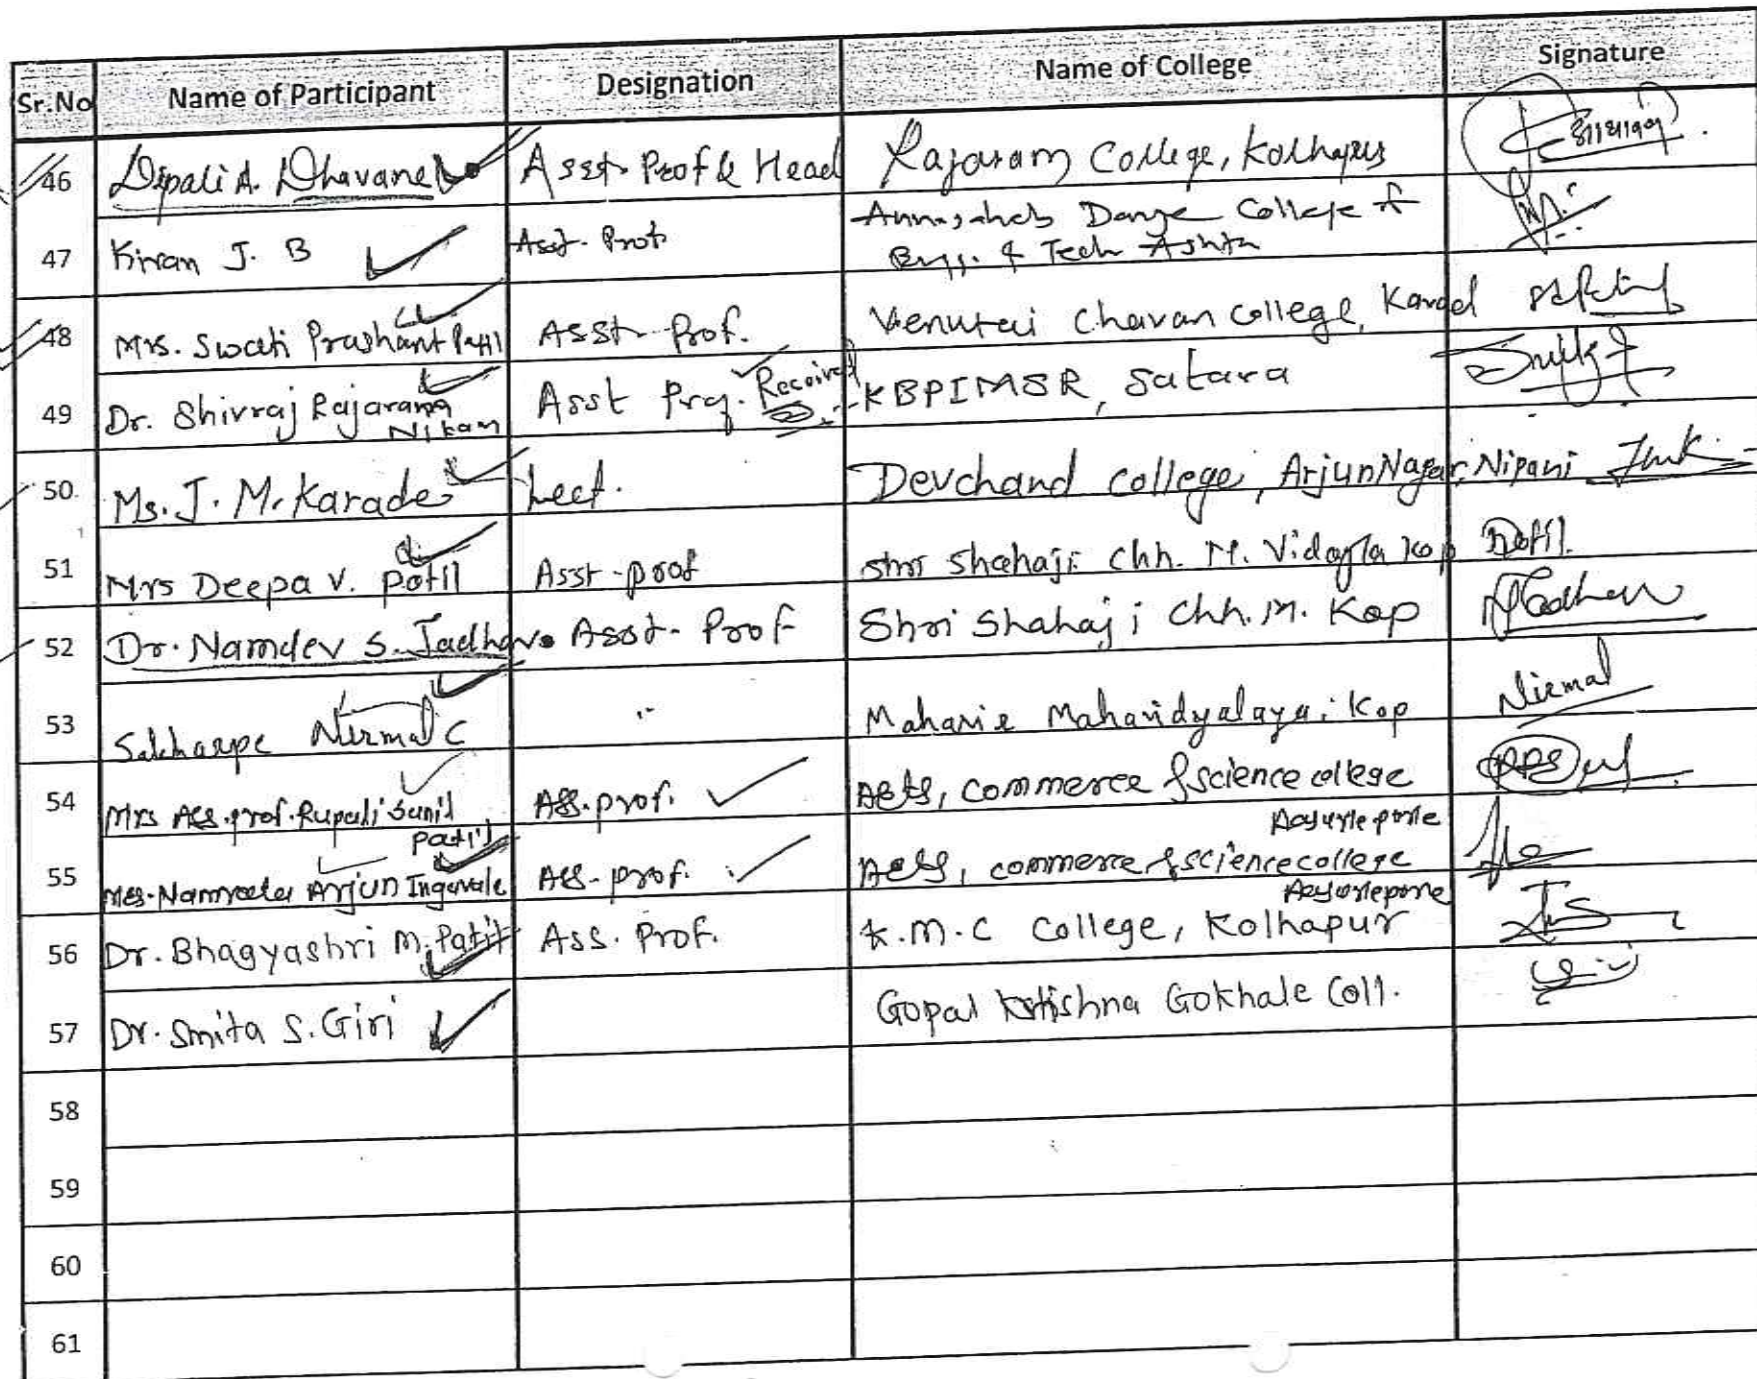 Sr.No Name of Participant Designation Name of College Signature
46 Dipali A. Dhavane Asst. Prof & Head Rajaram College, Kolhapur
47 Kiran J. B Asst. Prof Annasaheb Dange College of
Engg. & Tech Ashta
48 Mrs. Swati Prashant Patil Asst. Prof. Venutai Chavan College, Karad
49 Dr. Shivraj Rajaram Asst Prof. Received KBPIMSR, Satara
Nikam
50 Ms. J. M. Karade Lect. Devchand College, Arjun Nagar, Nipani
51 Mrs Deepa V. Patil Asst-prof Shri Shahaji Chh. M. Vidayla Kop Patil.
52 Dr. Namdev S. Jadhav. Asst. Prof Shri Shahaji Chh. M. Kop Jadhav
53 Sakharpe Nirmal C " Mahavir Mahavidyalaya, Kop Nirmal
54 Mrs Ass.prof. Rupali Sunil Ass.prof. Arts, Commerce & science college
Patil
55 Mrs. Namrata Arjun Ingavale Ass.prof. Arts, commerce & science college
56 Dr. Bhagyashri M. Patil Ass. Prof. K.M.C College, Kolhapur
57 Dr. Smita S. Giri Gopal Krishna Gokhale Coll.
58
59
60
61